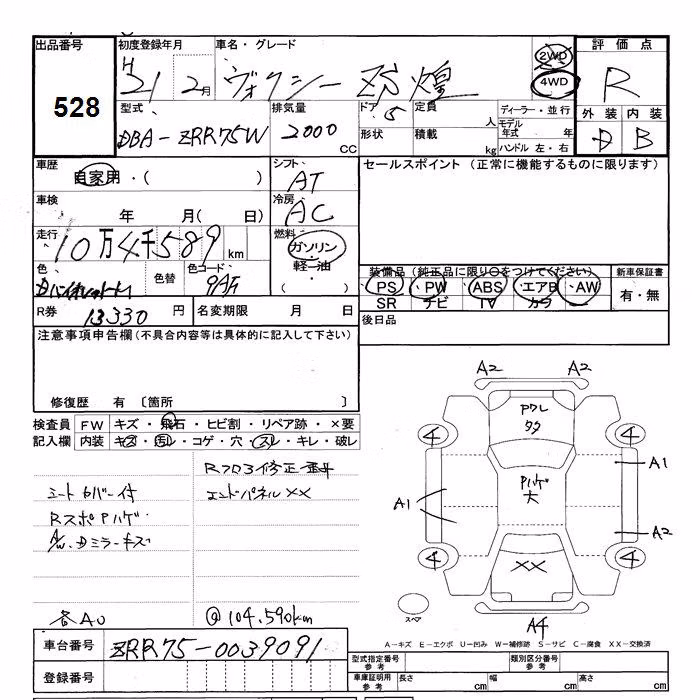 出品番号
528
初度登録年月
H 21 2月
車名・グレード
ヴォクシー ZS 煌
2WD
4WD
評価点
R
外装 内装
D B
型式
DBA-ZRR75W
排気量
2000 CC
ドア 5
形状
定員 人
積載 kg
ディーラー・並行
モデル年式 年
ハンドル 左・右
車歴
自家用・( )
車検
年 月( 日)
走行
10万4千589 km
色
色替
色コード
9AF
シフト
AT
冷房
AC
燃料
ガソリン
・軽油・
( )
R券 13330 円
名変期限 月 日
セールスポイント (正常に機能するものに限ります)
装備品 (純正品に限り○をつけてください)
PS・PW・ABS・エアB・AW
SR ナビ TV カワ
新車保証書
有・無
後日品
注意事項申告欄(不具合内容等は具体的に記入して下さい)
修復歴 有 〔箇所 〕
検査員記入欄
FW キズ・飛石・ヒビ割・リペア跡・×要
内装 キズ・汚れ・コゲ・穴・スレ・キレ・破レ
シートカバー付
RスポPハゲ
A/W、Dミラーキズ
各AU
エンドパネル××
@104.590km
A2 A2
4 4
PワレタタP
Pハゲ大
A1
A1
A2
4 4
××
A4
スペア
A-キズ E-エクボ U-凹み W-補修跡 S-サビ C-腐食 XX-交換済
車台番号 ZRR75-0039091
登録番号
型式指定番号 参考
類別区分番号 参考
車庫証明用 参考
長さ cm
幅 cm
高さ cm